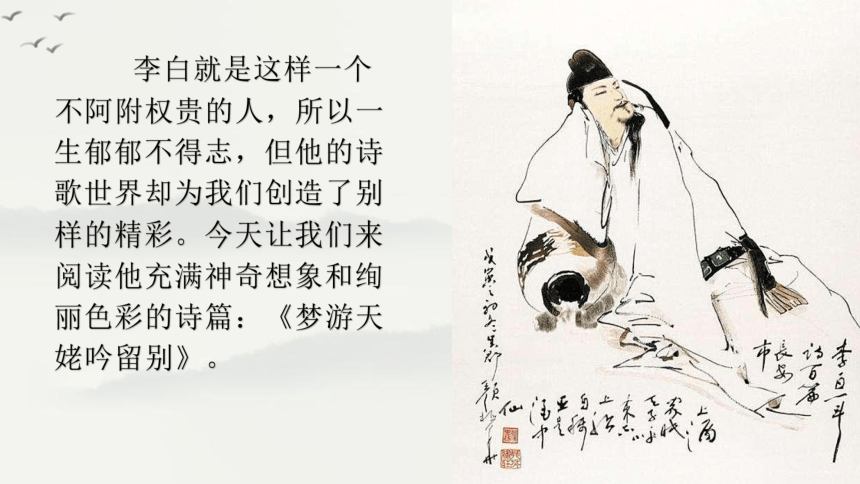 李白就是这样一个
不阿附权贵的人，所以一
生郁郁不得志，但他的诗
歌世界却为我们创造了别
样的精彩。今天让我们来
阅读他充满神奇想象和绚
丽色彩的诗篇：《梦游天
姥吟留别》。
李白一斗
诗百篇
長安
市
上酒
家眠
天子呼
来不
上船
自稱
臣是
酒中
仙